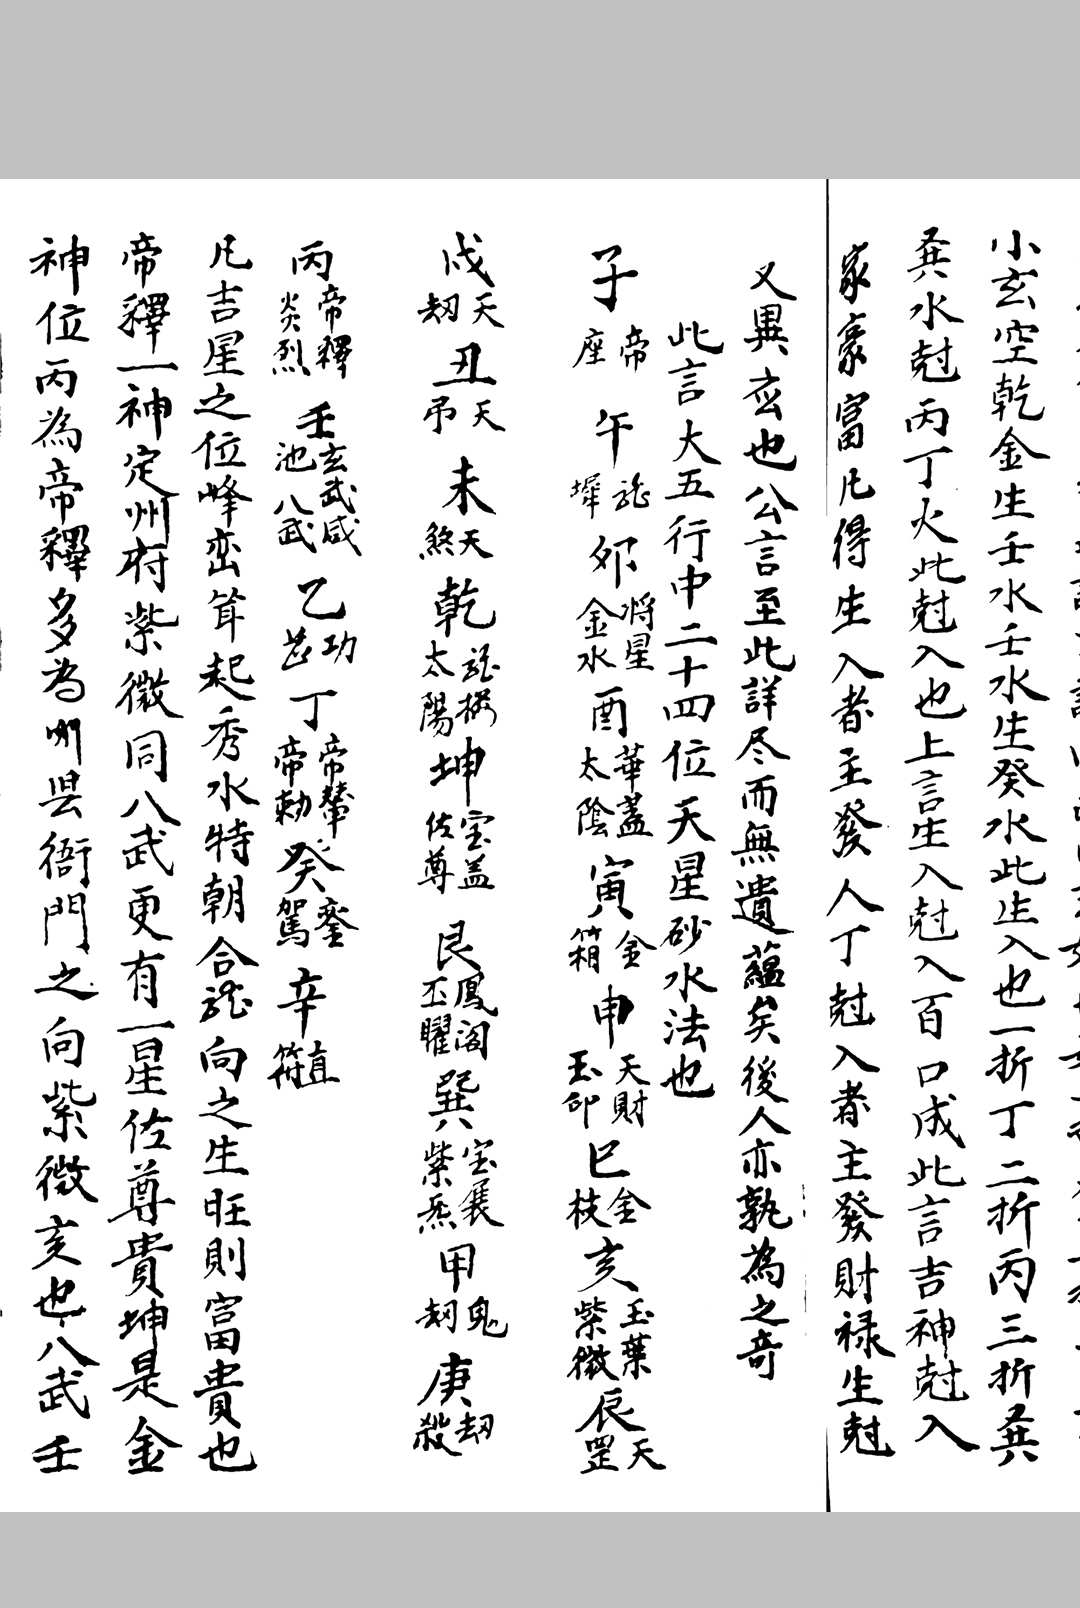 小玄空乾金生壬水壬水生癸水此生入也一折丁二折丙三折癸
癸水尅丙丁火此尅入也上言生入尅入百口成此言吉神尅入
家豪富凡得生入者主發人丁尅入者主發財禄生尅
又異玄也公言至此詳尽而無遺蘊矣後人亦孰為之奇
此言大五行中二十四位天星砂水法也
子帝座午龍墀卯将星金水酉華蓋太陰寅金箱申天財玉印巳金枝亥玉葉紫微辰天罡
戌天刼丑天吊未天煞乾龍樓太陽坤宝盖佐尊艮鳳阁丕曜巽宝展紫炁甲鬼刼庚刼殺
丙帝釋炎烈壬玄武咸池八武乙功丁帝輦帝勅癸鑾駕辛直符
凡吉星之位峰峦耸起秀水特朝合龍向之生旺則富貴也
帝釋一神定州府紫微同八武更有一星佐尊貴坤是金
神位丙為帝釋多為州县衙門之向紫微亥也八武壬